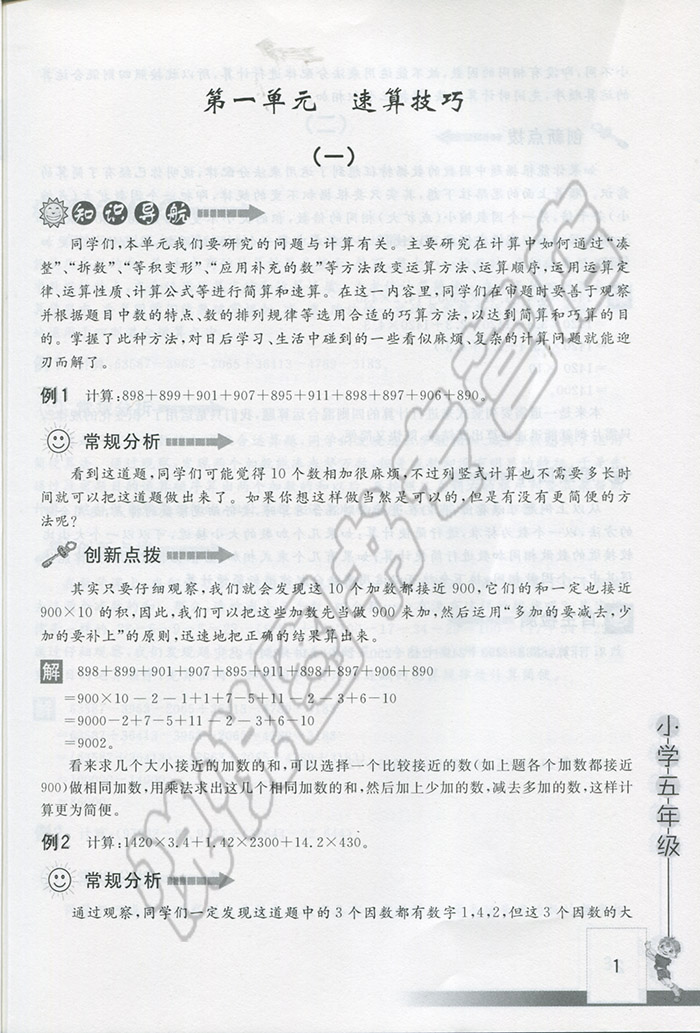 第一单元　速算技巧
（一）
知识导航
同学们,本单元我们要研究的问题与计算有关。主要研究在计算中如何通过“凑
整”、“拆数”、“等积变形”、“应用补充的数”等方法改变运算方法、运算顺序,运用运算定
律、运算性质、计算公式等进行简算和速算。在这一内容里,同学们在审题时要善于观察
并根据题目中数的特点、数的排列规律等选用合适的巧算方法,以达到简算和巧算的目
的。掌握了此种方法,对日后学习、生活中碰到的一些看似麻烦、复杂的计算问题就能迎
刃而解了。
例1　计算:898+899+901+907+895+911+898+897+906+890。
常规分析
看到这道题,同学们可能觉得10个数相加很麻烦,不过列竖式计算也不需要多长时
间就可以把这道题做出来了。如果你想这样做当然是可以的,但是有没有更简便的方
法呢?
创新点拨
其实只要仔细观察,我们就会发现这10个加数都接近900,它们的和一定也接近
900×10的积,因此,我们可以把这些加数先当做900来加,然后运用“多加的要减去,少
加的要补上”的原则,迅速地把正确的结果算出来。
解　898+899+901+907+895+911+898+897+906+890
=900×10-2-1+1+7-5+11-2-3+6-10
=9000-2+7-5+11-2-3+6-10
=9002。
看来求几个大小接近的加数的和,可以选择一个比较接近的数(如上题各个加数都接近
900)做相同加数,用乘法求出这几个相同加数的和,然后加上少加的数,减去多加的数,这样计
算更为简便。
例2　计算:1420×3.4+1.42×2300+14.2×430。
常规分析
通过观察,同学们一定发现这道题中的3个因数都有数字1,4,2,但这3个因数的大
小学五年级
1